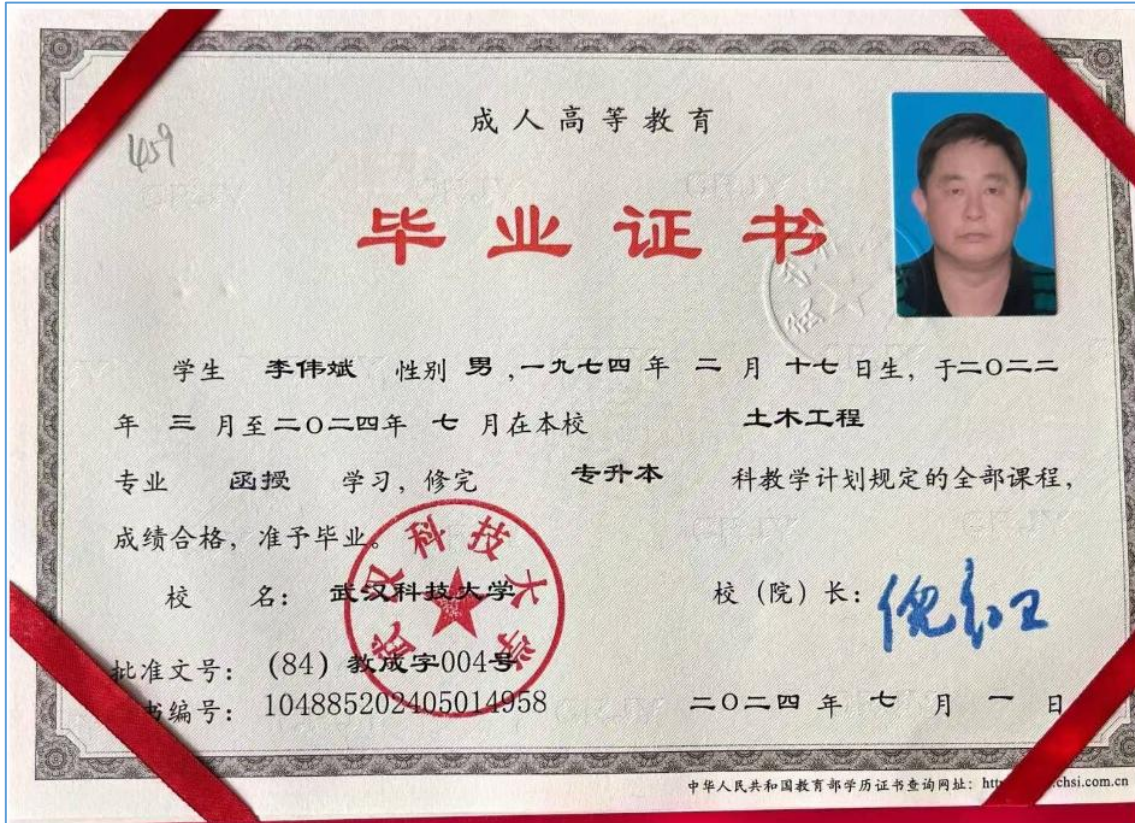 成人高等教育
459
毕业证书
学生 李伟斌 性别 男 ,一九七四 年 二 月 十七 日生, 于二〇二二
年 三 月至 二〇二四年 七 月在本校 土木工程
专业 函授 学习, 修完 专升本 科教学计划规定的全部课程,
成绩合格, 准予毕业。
校 名: 武汉科技大学
校 (院) 长:
武汉科技大学
批准文号: (84) 教成字004号
书编号: 104885202405014958
二〇二四 年 七 月 一 日
中华人民共和国教育部学历证书查询网址: htt chsi.com.cn